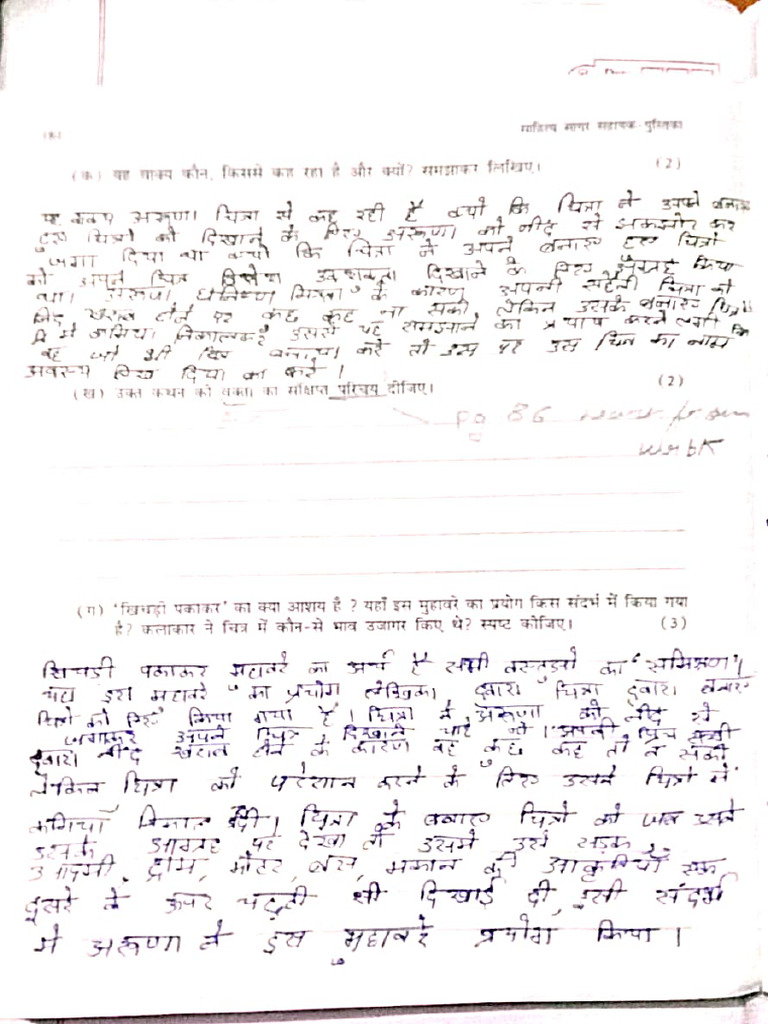 साहित्य सागर सहायक-पुस्तिका
(क) यह वाक्य कौन, किससे कह रहा है और क्यों? समझाकर लिखिए। (2)
यह वाक्य अरूणा चित्रा से कह रही है क्यो कि चित्रा ने अपने बनाए
हुए चित्रो को दिखाने के लिए अरूणा को नींद से झकझोर कर
जगा दिया था क्यो कि चित्रा ने अपने बनाए हुए चित्रो
को अपने चित्र दिखाने के लिए आग्रह किया
था। अरूणा घनिष्ण मित्रता के कारण अपनी सहेली चित्रा को
नींद खराब होने पर कुछ कह ना सकी लेकिन उसके बनाए चित्रो
में कमिया निकालकर उससे यह समझाने का प्रयास करने लगी कि
वह जो भी चित्र बनाया करे तो उस पर उस चित्र का नाम
अवश्य लिख दिया करे।
(ख) उक्त कथन की वक्ता का संक्षिप्त परिचय दीजिए। (2)
Pg 86
work
(ग) 'खिचड़ी पकाकर' का क्या आशय है ? यहाँ इस मुहावरे का प्रयोग किस संदर्भ में किया गया
है? कलाकार ने चित्र में कौन-से भाव उजागर किए थे? स्पष्ट कीजिए। (3)
खिचड़ी पकाकर मुहावरे का अर्थ है सभी वस्तुओ का 'समिश्रण'।
यहा इस मुहावरे का प्रयोग लेखिका द्वारा चित्रा द्वारा बनाए
चित्रो को लिए किया गया है। चित्रा ने अरूणा को नींद से
जगाकर अपने चित्र दिखाने चाहे थे। अपनी प्रिय सखी
द्वारा नींद खराब होने के कारण वह कुछ कह तो न सकी
लेकिन चित्रा को परेशान करने के लिए उसने चित्रो में
कमियाँ निकाल दी। चित्रा के बनाए चित्रो को जब उसने
उसके आग्रह पर देखा तो उसमे उसे सड़क,
आदमी, ट्राम, मोटर, बस, मकान की आकृतियाँ एक
दूसरे के ऊपर चढ़ती सी दिखाई दी, इसी संदर्भ
मे अरूणा ने इस मुहावरे प्रयोग किया।